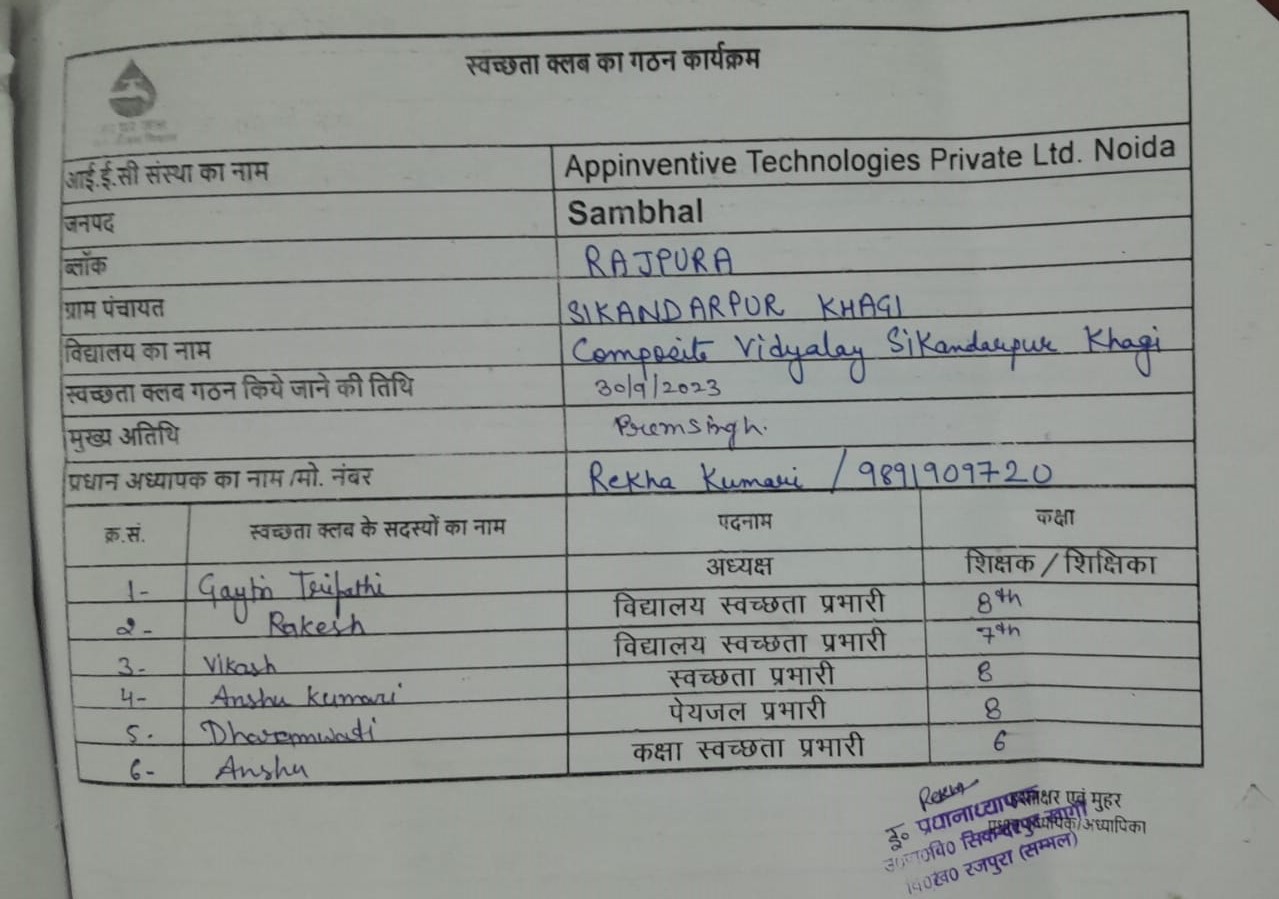 स्वच्छता क्लब का गठन कार्यक्रम
आई.ई.सी संस्था का नाम Appinventive Technologies Private Ltd. Noida
जनपद Sambhal
ब्लॉक RAJPURA
ग्राम पंचायत SIKANDARPUR KHAGI
विद्यालय का नाम Composite Vidyalay Sikandarpur Khagi
स्वच्छता क्लब गठन किये जाने की तिथि 30/9/2023
मुख्य अतिथि Premsingh.
प्रधान अध्यापक का नाम /मो. नंबर Rekha Kumari / 9891909720
क्र.सं. स्वच्छता क्लब के सदस्यों का नाम पदनाम कक्षा
1- अध्यक्ष शिक्षक / शिक्षिका
2- Rakesh विद्यालय स्वच्छता प्रभारी 8th
3- Vikash विद्यालय स्वच्छता प्रभारी 7th
4- Anshu Kumari स्वच्छता प्रभारी 8
5- Dharamwati पेयजल प्रभारी 8
6- Anshu कक्षा स्वच्छता प्रभारी 6
Rekha
इ० प्रधानाध्यापक
एवं मुहर
/अध्यापिका
वि०ख० रजपुरा (सम्भल)